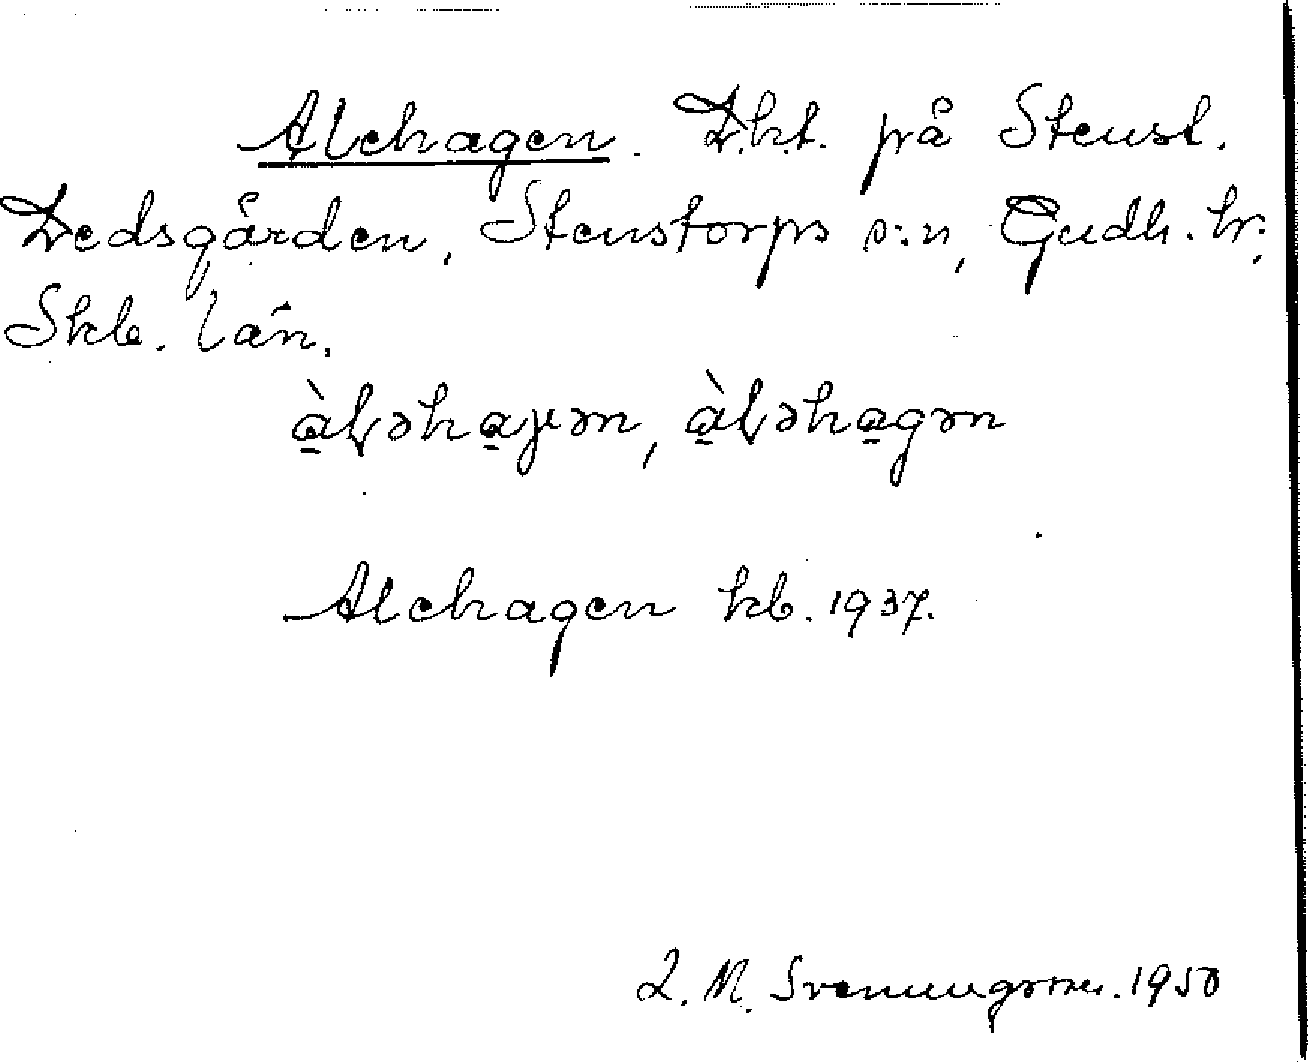 Alehagen. D.h.t. på Stenst.
Dedsgården, Stenstorps s:n, Gudh. hr.
Skb. län.
àləhaγən, àləhagən
Alehagen kb. 1937.
L. M. Svenungsson. 1950